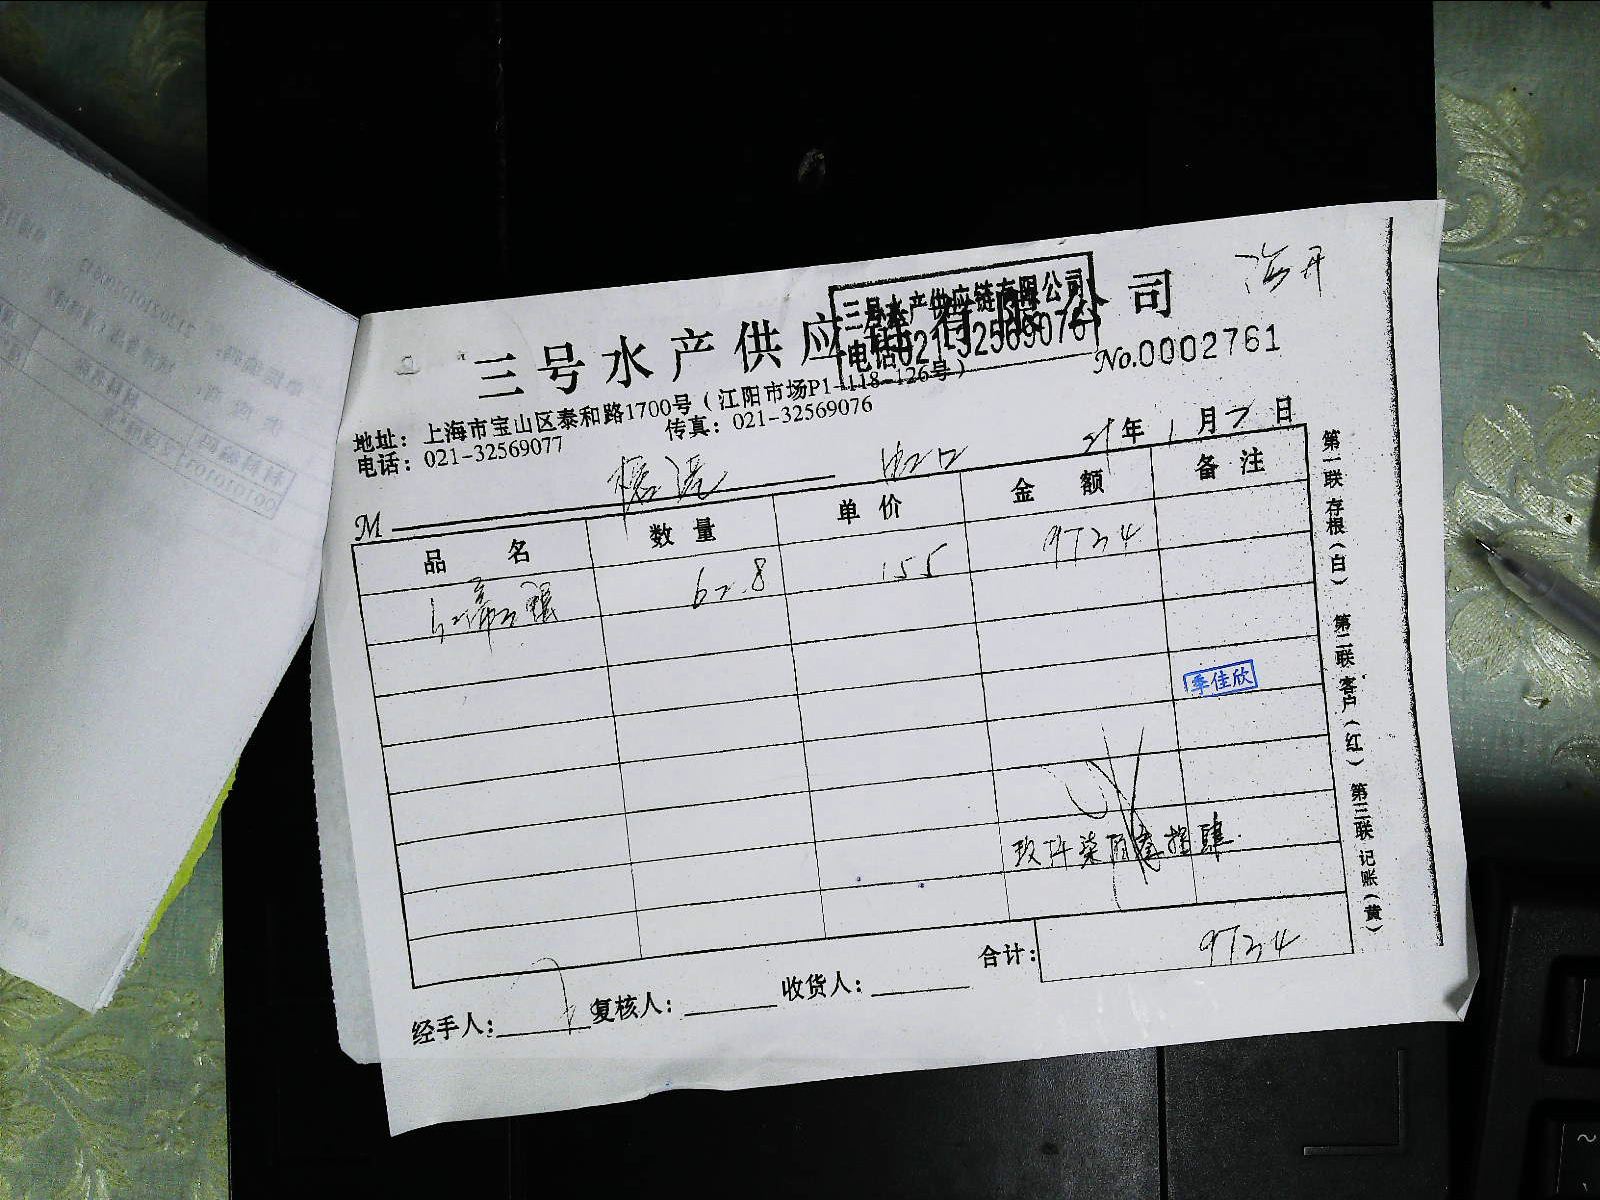 海开
三号水产供应链有限公司
三号水产供应链有限公司
电话021-32569076
No.0002761
地址：上海市宝山区泰和路1700号（江阳市场P1-118-126号）
电话：021-32569077 传真：021-32569076
21年1月7日
M 虹口
品名 数量 单价 金额 备注
62.8 155 9734
季佳欣
玖仟柒佰叁拾肆
合计： 9734
经手人： 复核人： 收货人：
第一联 存根（白） 第二联 客户（红） 第三联 记账（黄）